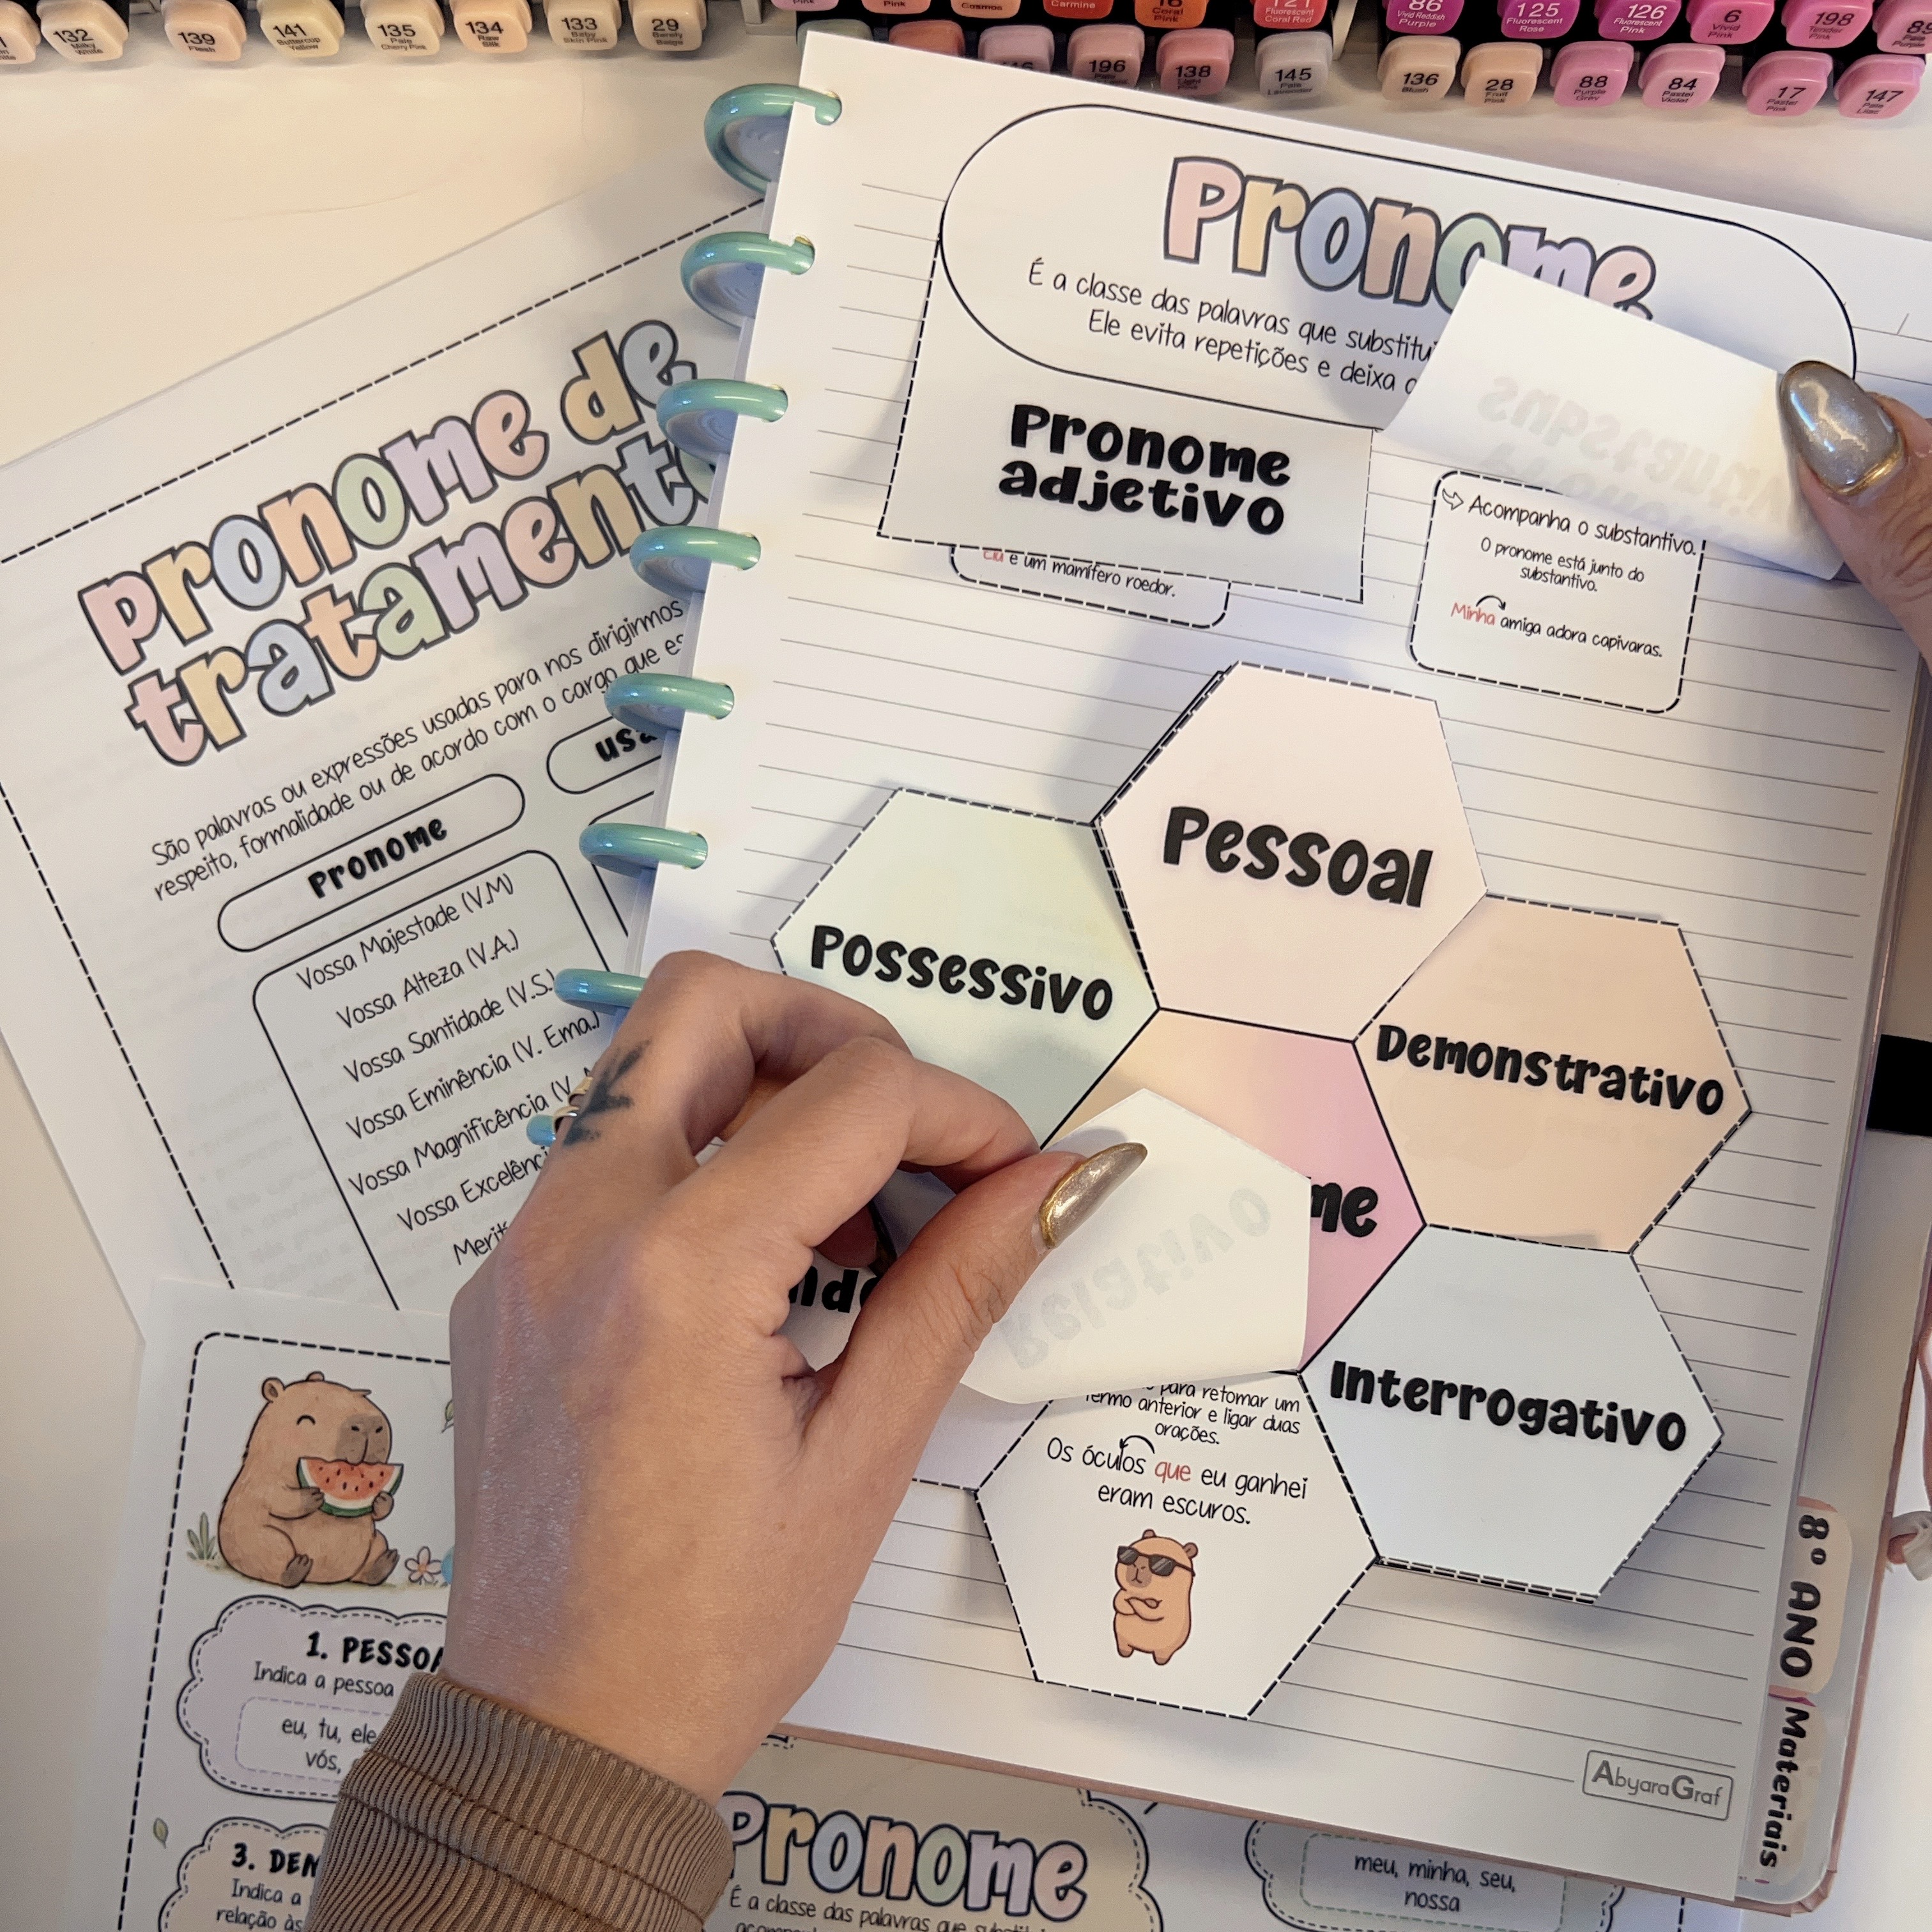 132
Milky White
139
Flesh
141
Buttercup Yellow
135
Pale Cherry Pink
134
Raw Silk
133
Baby Skin Pink
29
Barely Beige
Pink
Cosmos
Carmine
16
Coral Pink
121
Fluorescent Coral Red
86
Vivid Reddish Purple
125
Fluorescent Rose
126
Fluorescent Pink
6
Vivid Pink
198
Tender Pink
89
Pale Purple
196
138
Light Pink
145
Pale Lavender
136
Blush
28
Fruit Pink
88
Purple Grey
84
Pastel Violet
17
Pastel Pink
147
Pale Lilac
Pronome
É a classe das palavras que
Ele evita repetições e deixa
Pronome
adjetivo
é um mamífero roedor.
Acompanha o substantivo.
O pronome está junto do
substantivo.
Minha amiga adora capivaras.
Pessoal
Possessivo
Demonstrativo
Interrogativo
Relativo
me
para retomar um
termo anterior e ligar duas
orações.
Os óculos que eu ganhei
eram escuros.
AbyaraGraf
8º ANO
Materiais
pronome de
tratamento
São palavras ou expressões usadas para nos dirigirmos
respeito, formalidade ou de acordo com o cargo que
Pronome
Vossa Majestade (V.M)
Vossa Alteza (V.A.)
Vossa Santidade (V.S.)
Vossa Eminência (V. Ema.)
Vossa Magnificência (V.
Vossa
1. PESSOA
Indica a pessoa
eu, tu, ele
vós,
3. DEM
Indica a
relação às
Pronome
É a classe das palavras que
meu, minha, seu,
nossa